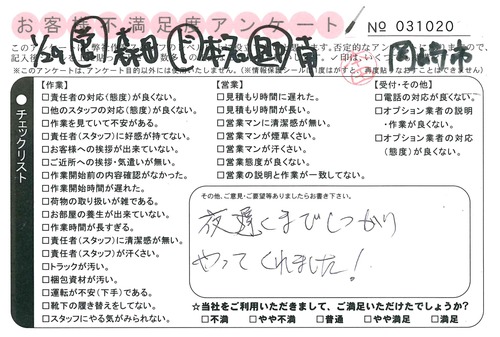 お客様不満足度アンケート
№ 031020
1/24
岡崎市
※このアンケートは、アンケート目的以外には使用いたしません。
チェックリスト
【作業】
□責任者の対応(態度)が良くない。
□他のスタッフの対応(態度)が良くない。
□作業を見ていて不安がある。
□責任者(スタッフ)に好感が持てない。
□お客様への挨拶が出来ていない。
□ご近所への挨拶・気遣いが無い。
□作業開始前の内容確認がなかった。
□作業開始時間が遅れた。
□荷物の取り扱いが雑である。
□お部屋の養生が出来ていない。
□作業時間が長すぎる。
□責任者(スタッフ)に清潔感が無い。
□責任者(スタッフ)が汗くさい。
□トラックが汚い。
□梱包資材が汚い。
□運転が不安(下手)である。
□靴下の履き替えをしてない。
□スタッフにやる気がみられない。
【営業】
□見積もり時間に遅れた。
□見積もり時間が長い。
□営業マンに清潔感が無い。
□営業マンが煙草くさい。
□営業マンが汗くさい。
□営業態度が良くない。
□営業の説明と作業が一致してない。
【受付・その他】
□電話の対応が良くない。
□オプション業者の説明
・作業が良くない。
□オプション業者の対応
(態度)が良くない。
その他、ご意見・ご要望等ありましたらお書き下さい。
夜遅くまでしっかり
やってくれました!
☆当社をご利用いただきまして、ご満足いただけたでしょうか?
□不満 □やや不満 □普通 □やや満足 □満足